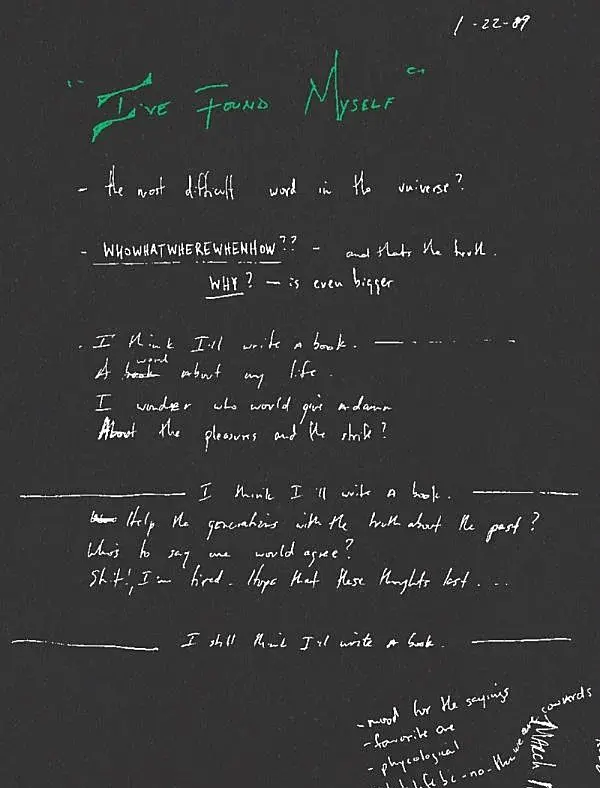 1-22-89
"I've Found Myself"
- the most difficult word in the universe?
- WHOWHATWHEREWHENHOW?? - and thats the truth.
WHY? - is even bigger
. I think I'll write a book.
A book word about my life.
I wonder who would give a damn
About the pleasures and the strife?
I think I'll write a book.
Help the generations with the truth about the past?
Who's to say we would agree?
Shit!, I'm tired. Hope that these thoughts last....
I still think I'll write a book.
- mood for the sayings
- favorite are
- phycological
we are cowards
March